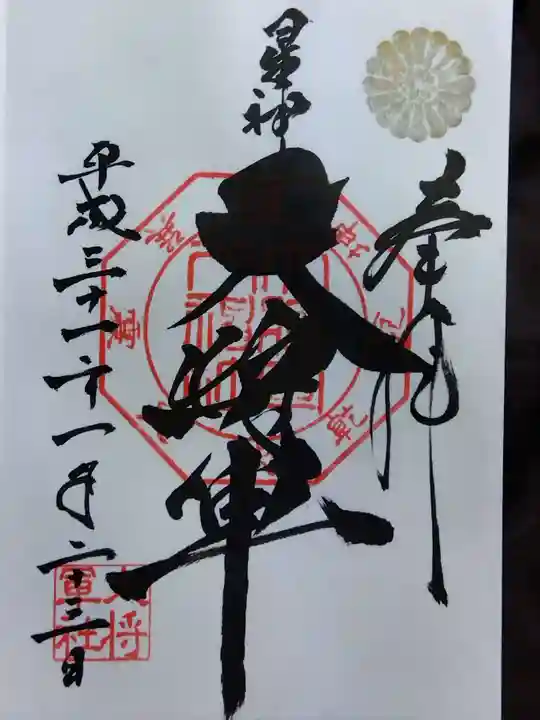 奉拝
星神
大将軍
平成三十一年一月二十三日
大将軍社